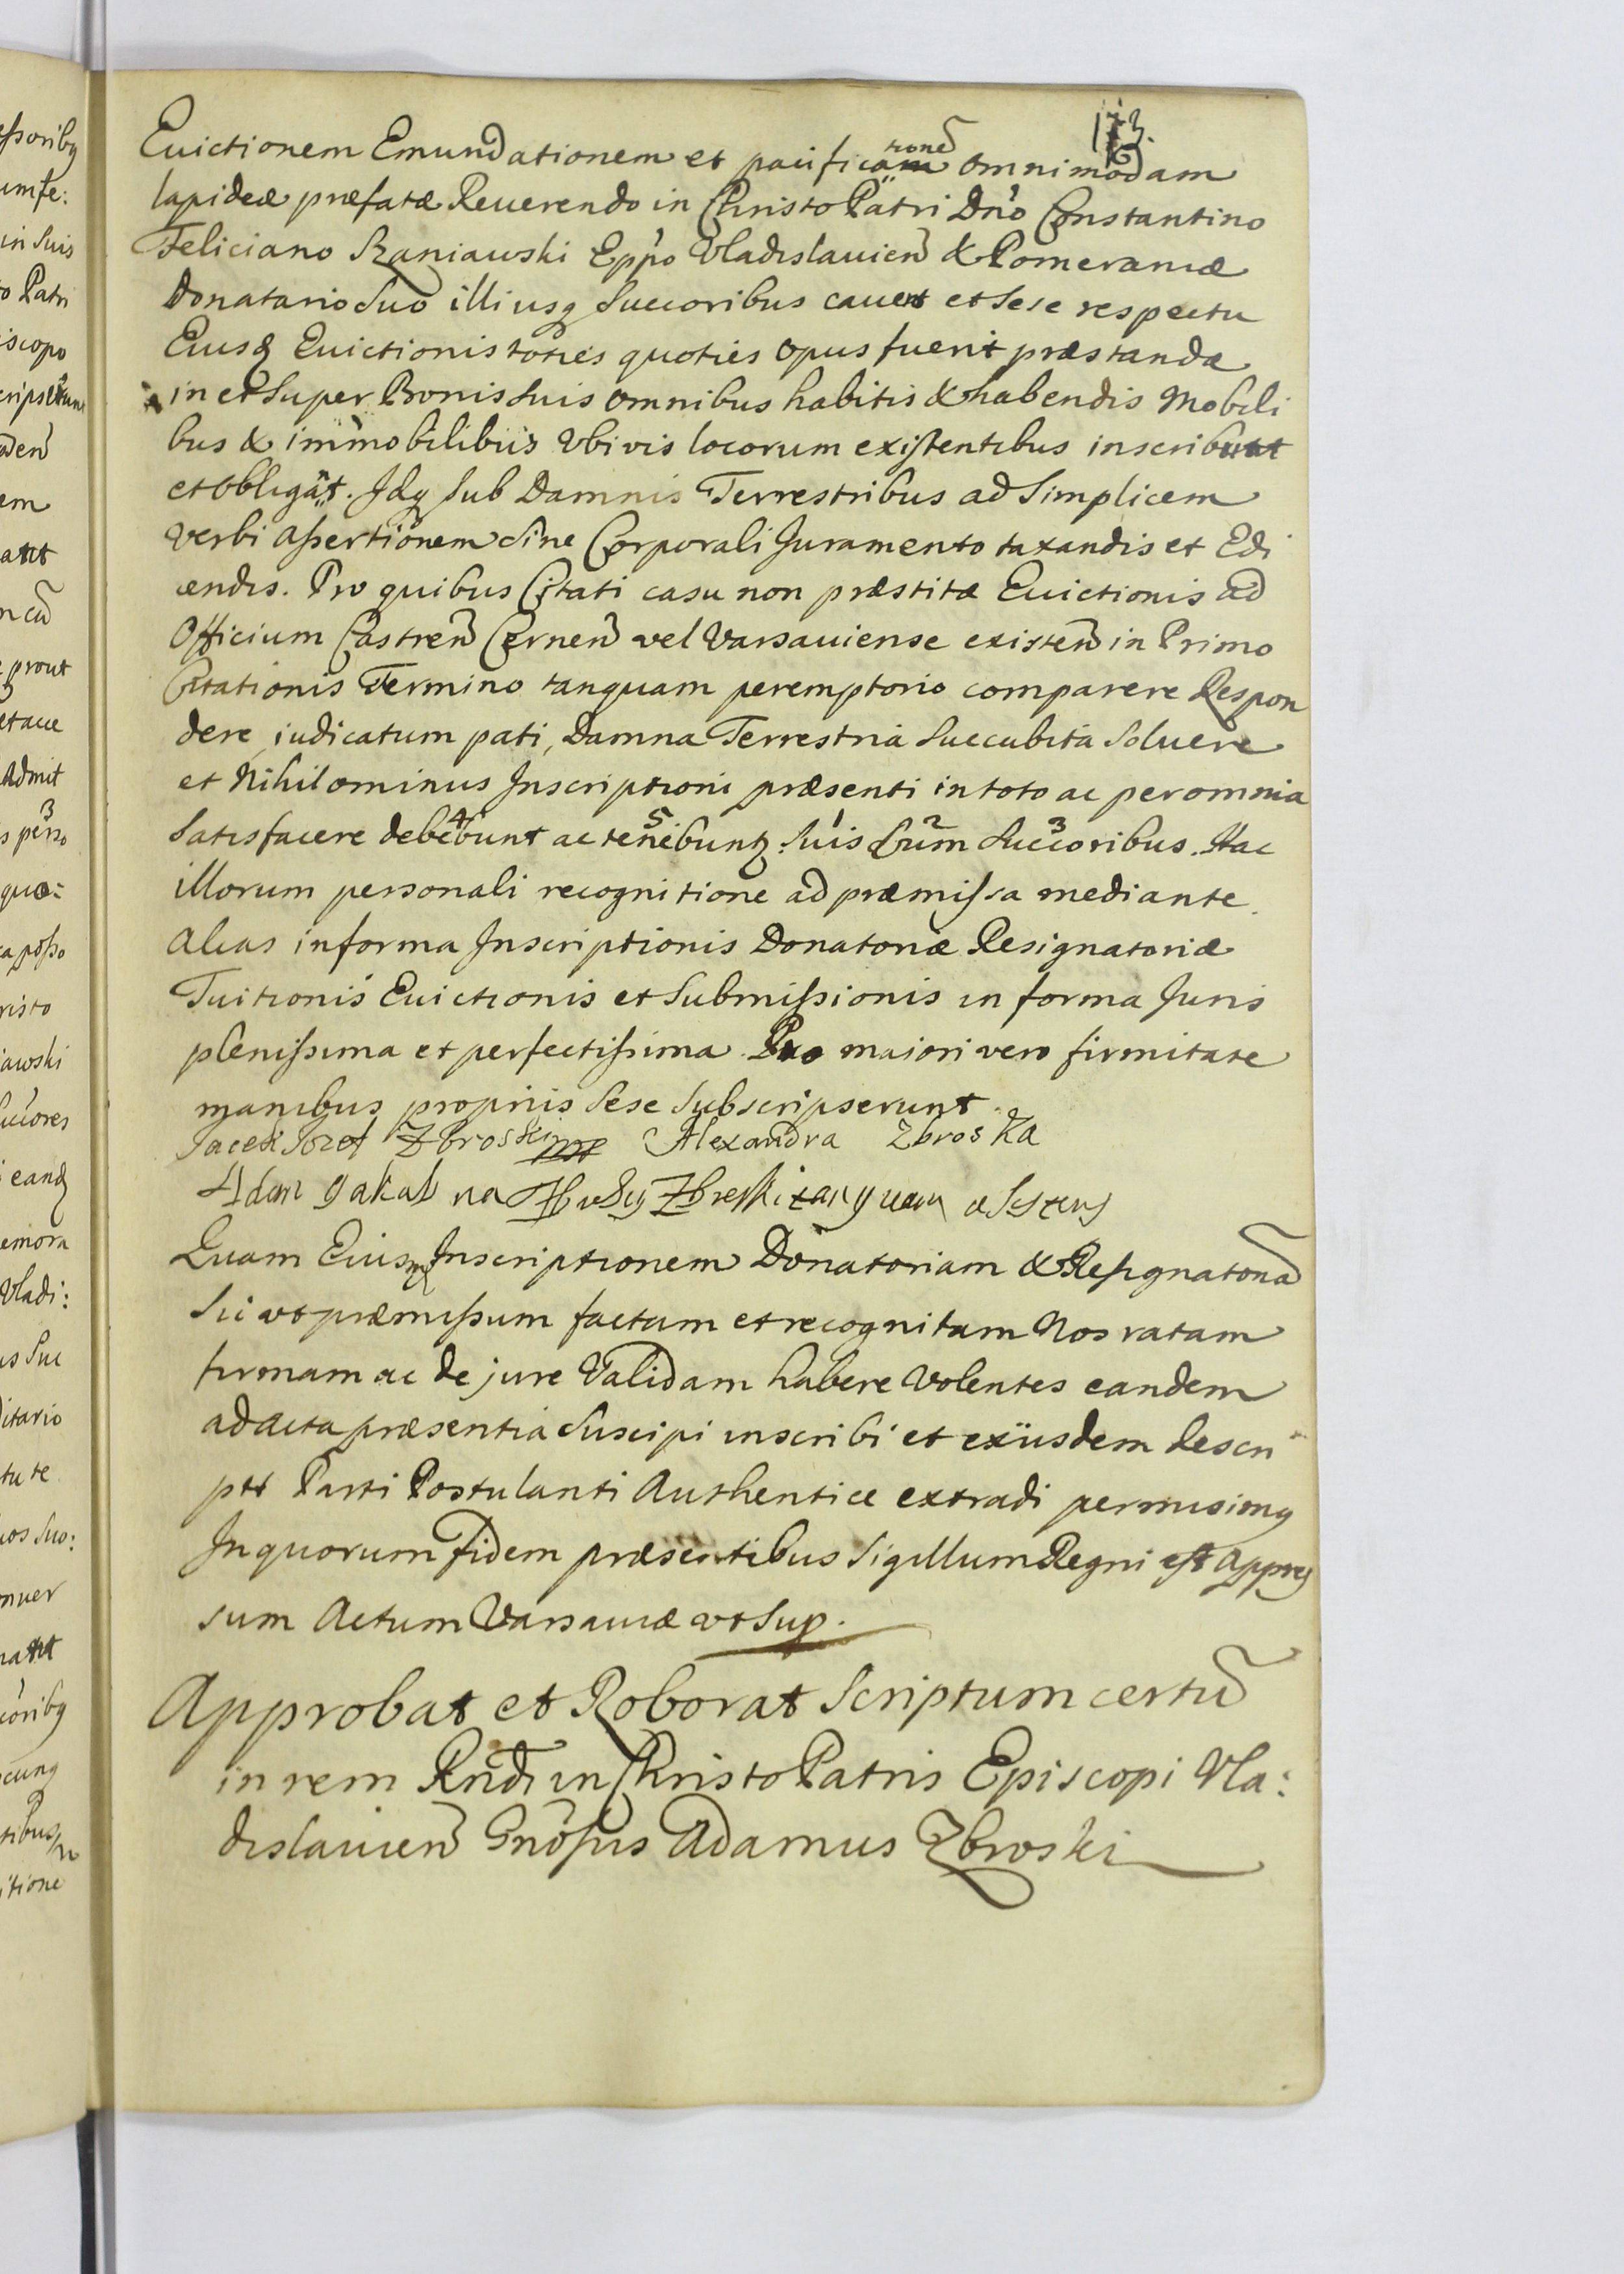 173.
Euictionem Emundationem et pacificationē omnimodam
lapideæ præfatæ Reuerendo in Christo Patri Dn̄o Constantino
Feliciano Szaniawski Epp̄o Vladislauien̄ & Pomeraniæ
Donatario Suo illiusq Succoribus cauet et Sese respectu
Eiusḍ Euictionis toties quoties opus fuerit præstandæ
in et Super Bonis Suis omnibus habitis & habendis Mobili
bus & immobilibus Vbivis locorum existentibus inscribunt
et obligāt. Idq sub Damnis Terrestribus ad Simplicem
verbi assertionem Sine Corporali Juramento taxandis et Edi
cendis. Pro quibus Citati casu non præstitæ Euictionis ad
Officium Castren̄ Cernen̄ vel Varsauiense existen̄ in Primo
Citationis Termino tanquam peremptorio comparere Respon
dere iudicatum pati, Damna Terrestria Succubita Soluere
et Nihilominus Inscriptioni præsenti in toto ac per omnia
Satisfacere debebunt ac tenebuntʒ Suis cum Succoribus. Hac
illorum personali recognitione ad præmissa mediante.
Alias in forma Inscriptionis Donatoriæ Resignatoriæ
Tuitionis Euictionis et Submissionis in forma Juris
plenissima et perfectissima. Pro maiori vero firmitate
manibus propriis Sese Subscripserunt.
Jacek Jozef Zbroski mp Alexandra Zbroska
Adam Jakub na Zbroski tanquam assistens
Quam Eiusmḍ Inscriptionem Donatoriam & Resignatoriā
Sic ut præmissum factam et recognitam Nos ratam
firmam ac de jure Validam habere Volentes eandem
ad acta præsentia Suscipi inscribi et exiüsdem descri
pti Parti Postulanti Authentice extradi permisimq
In quorum fidem præsentibus Sigillum Regni est appres
sum Actum Varsauiæ vt Sup.
Approbat et Roborat Scriptum certū
in rem Rn̄di in Christo Patris Episcopi Vla:
dislauien̄ Gn̄osus Adamus Zbroski